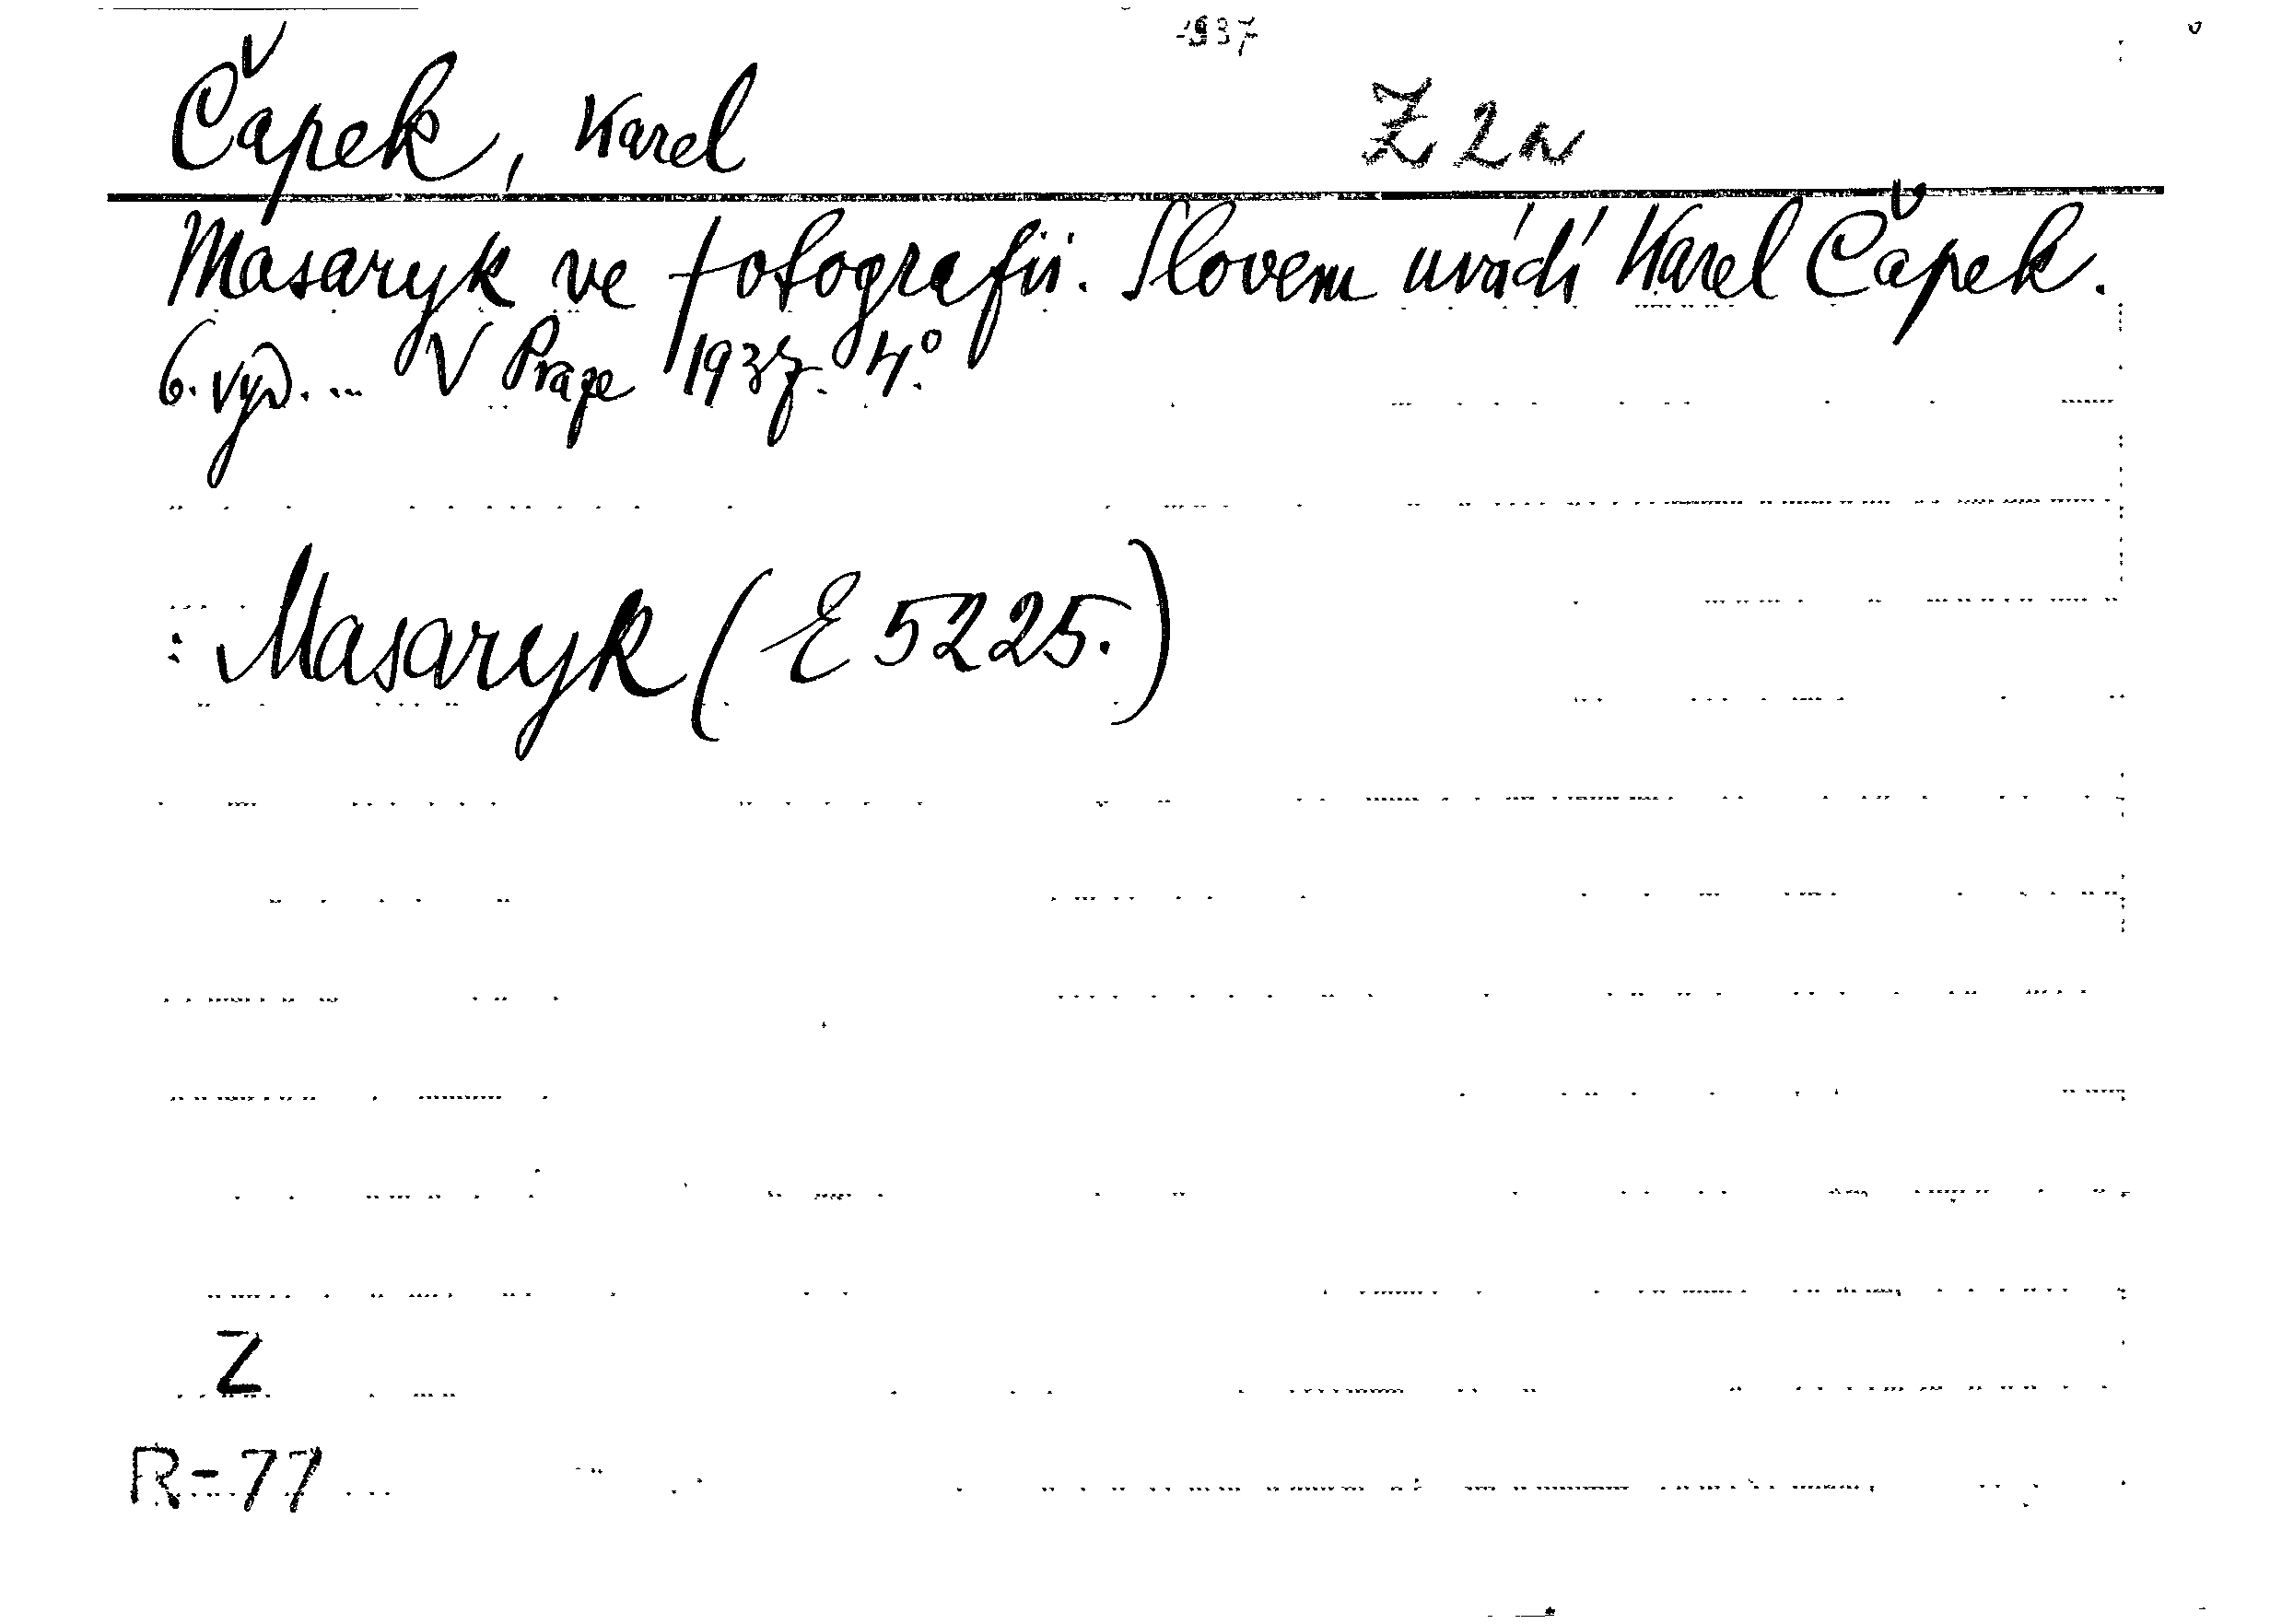 1937
Čapek, Karel Z 2a
Masaryk ve fotografii. Slovem uvádí Karel Čapek.
6. vyd. ... V Praze 1937. 4°.
: Masaryk (E 5225.)
Z
R-77